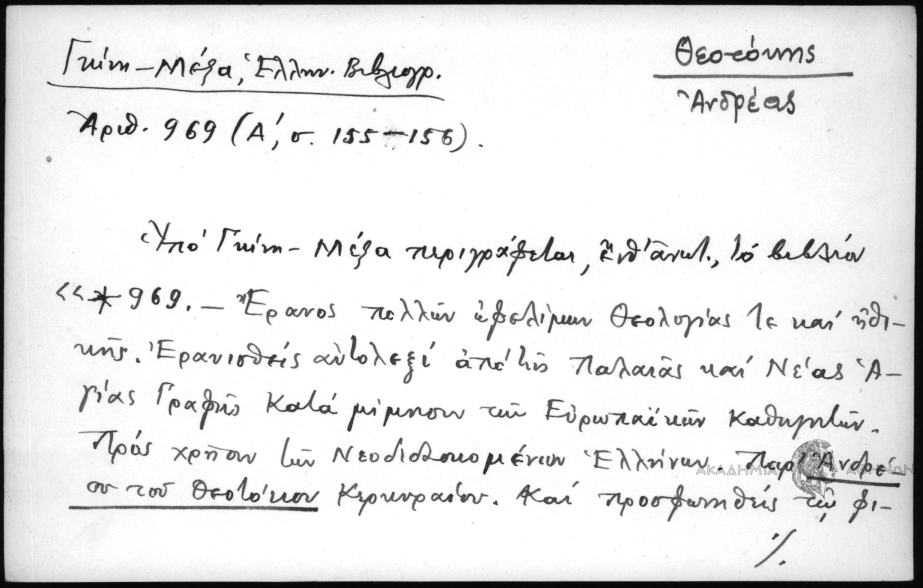 Γκίνη – Μέξα, Ἑλλην. Βιβλιογρ.
Θεοτόκης
Ἀνδρέας
Ἀριθ. 969 (Α΄, σ. 155–156).
Ὑπό Γκίνη – Μέξα περιγράφεται, ἔνθ' ἀνωτ., τό βιβλίον
«✶ 969. – Ἔρανος πολλῶν ὠφελίμων Θεολογίας τε καί ἠθι-
κῆς. Ἐρανισθείς αὐτολεξί ἀπό τῆς Παλαιᾶς καί Νέας Ἁ-
γίας Γραφῆς κατά μίμησιν τῶν Εὐρωπαϊκῶν καθηγητῶν.
Πρός χρῆσιν τῶν Νεοδιδασκομένων Ἑλλήνων. Παρ' Ἀνδρέ
ου τοῦ Θεοτόκου Κερκυραίου. Καί προσφωνηθείς τῷ φι-
./.
ΑΚΑΔΗΜΙΑ ΑΘΗΝΩΝ